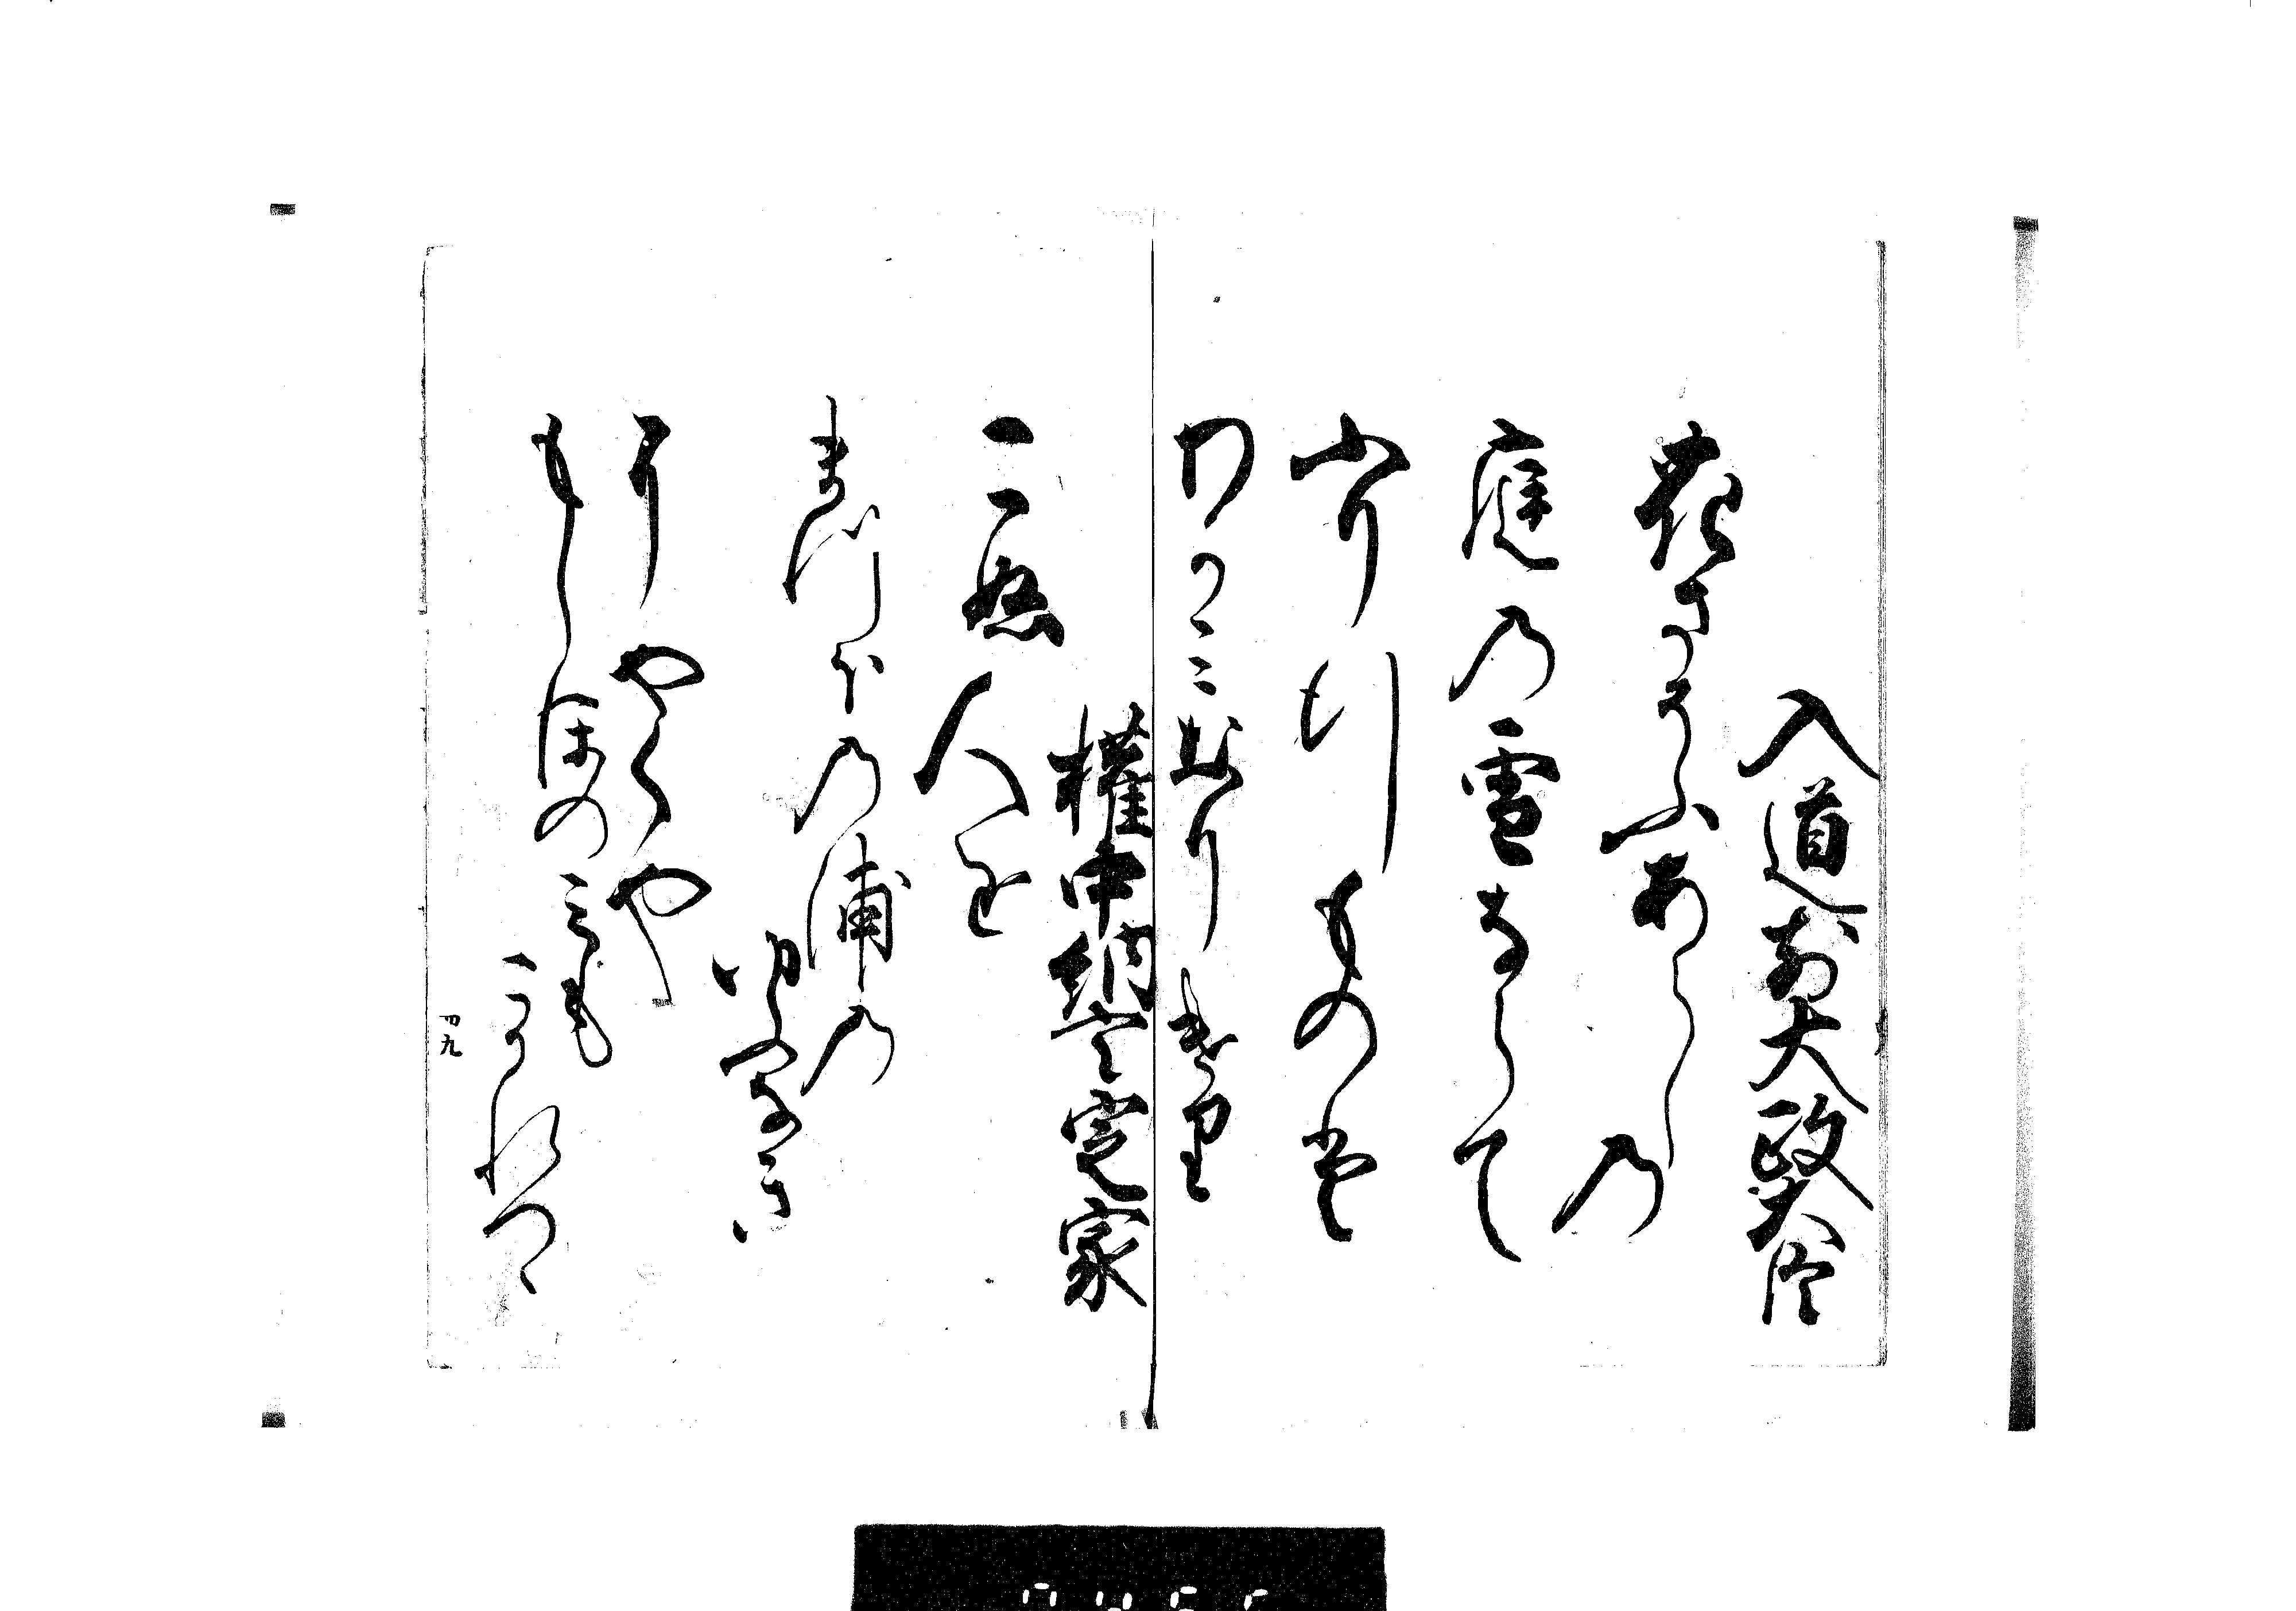 入道前大政大臣
花さそふあらしの
庭の雪ならて
ふり行ものは
わかみ成りけり
権中納言定家
こぬ人を
まつほの浦の
夕なき
に
やくや
もしほの
みも
こかれつゝ
四九